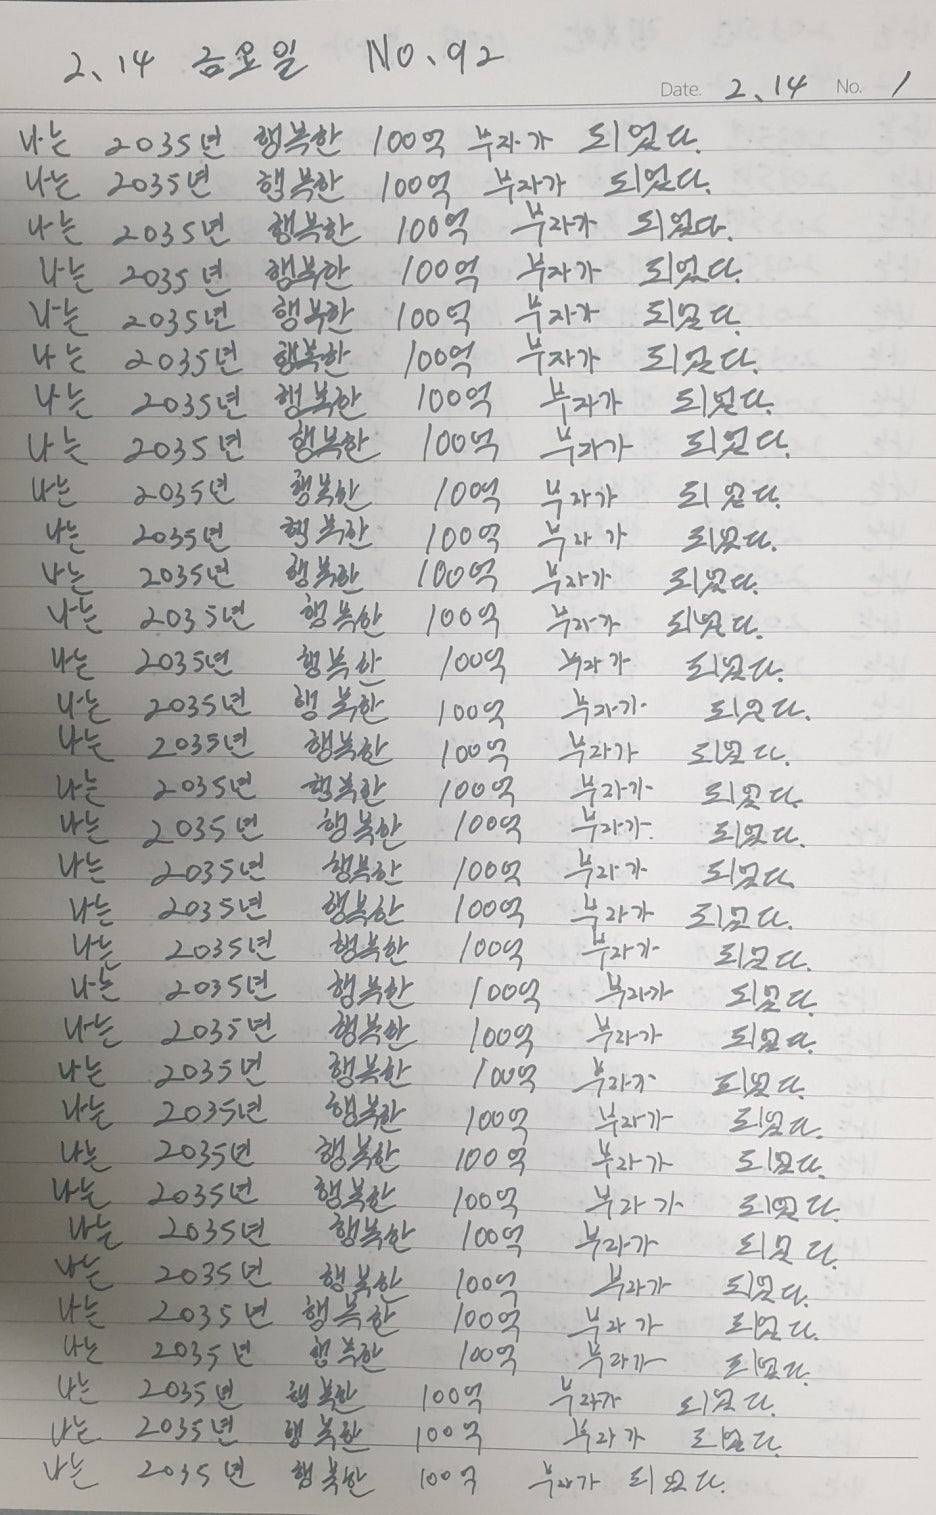 2.14 금요일 No.92
Date. 2.14 No. 1
나는 2035년 행복한 100억 부자가 되었다.
나는 2035년 행복한 100억 부자가 되었다.
나는 2035년 행복한 100억 부자가 되었다.
나는 2035년 행복한 100억 부자가 되었다.
나는 2035년 행복한 100억 부자가 되었다.
나는 2035년 행복한 100억 부자가 되었다.
나는 2035년 행복한 100억 부자가 되었다.
나는 2035년 행복한 100억 부자가 되었다.
나는 2035년 행복한 100억 부자가 되었다.
나는 2035년 행복한 100억 부자가 되었다.
나는 2035년 행복한 100억 부자가 되었다.
나는 2035년 행복한 100억 부자가 되었다.
나는 2035년 행복한 100억 부자가 되었다.
나는 2035년 행복한 100억 부자가 되었다.
나는 2035년 행복한 100억 부자가 되었다.
나는 2035년 행복한 100억 부자가 되었다.
나는 2035년 행복한 100억 부자가 되었다.
나는 2035년 행복한 100억 부자가 되었다.
나는 2035년 행복한 100억 부자가 되었다.
나는 2035년 행복한 100억 부자가 되었다.
나는 2035년 행복한 100억 부자가 되었다.
나는 2035년 행복한 100억 부자가 되었다.
나는 2035년 행복한 100억 부자가 되었다.
나는 2035년 행복한 100억 부자가 되었다.
나는 2035년 행복한 100억 부자가 되었다.
나는 2035년 행복한 100억 부자가 되었다.
나는 2035년 행복한 100억 부자가 되었다.
나는 2035년 행복한 100억 부자가 되었다.
나는 2035년 행복한 100억 부자가 되었다.
나는 2035년 행복한 100억 부자가 되었다.
나는 2035년 행복한 100억 부자가 되었다.
나는 2035년 행복한 100억 부자가 되었다.
나는 2035년 행복한 100억 부자가 되었다.